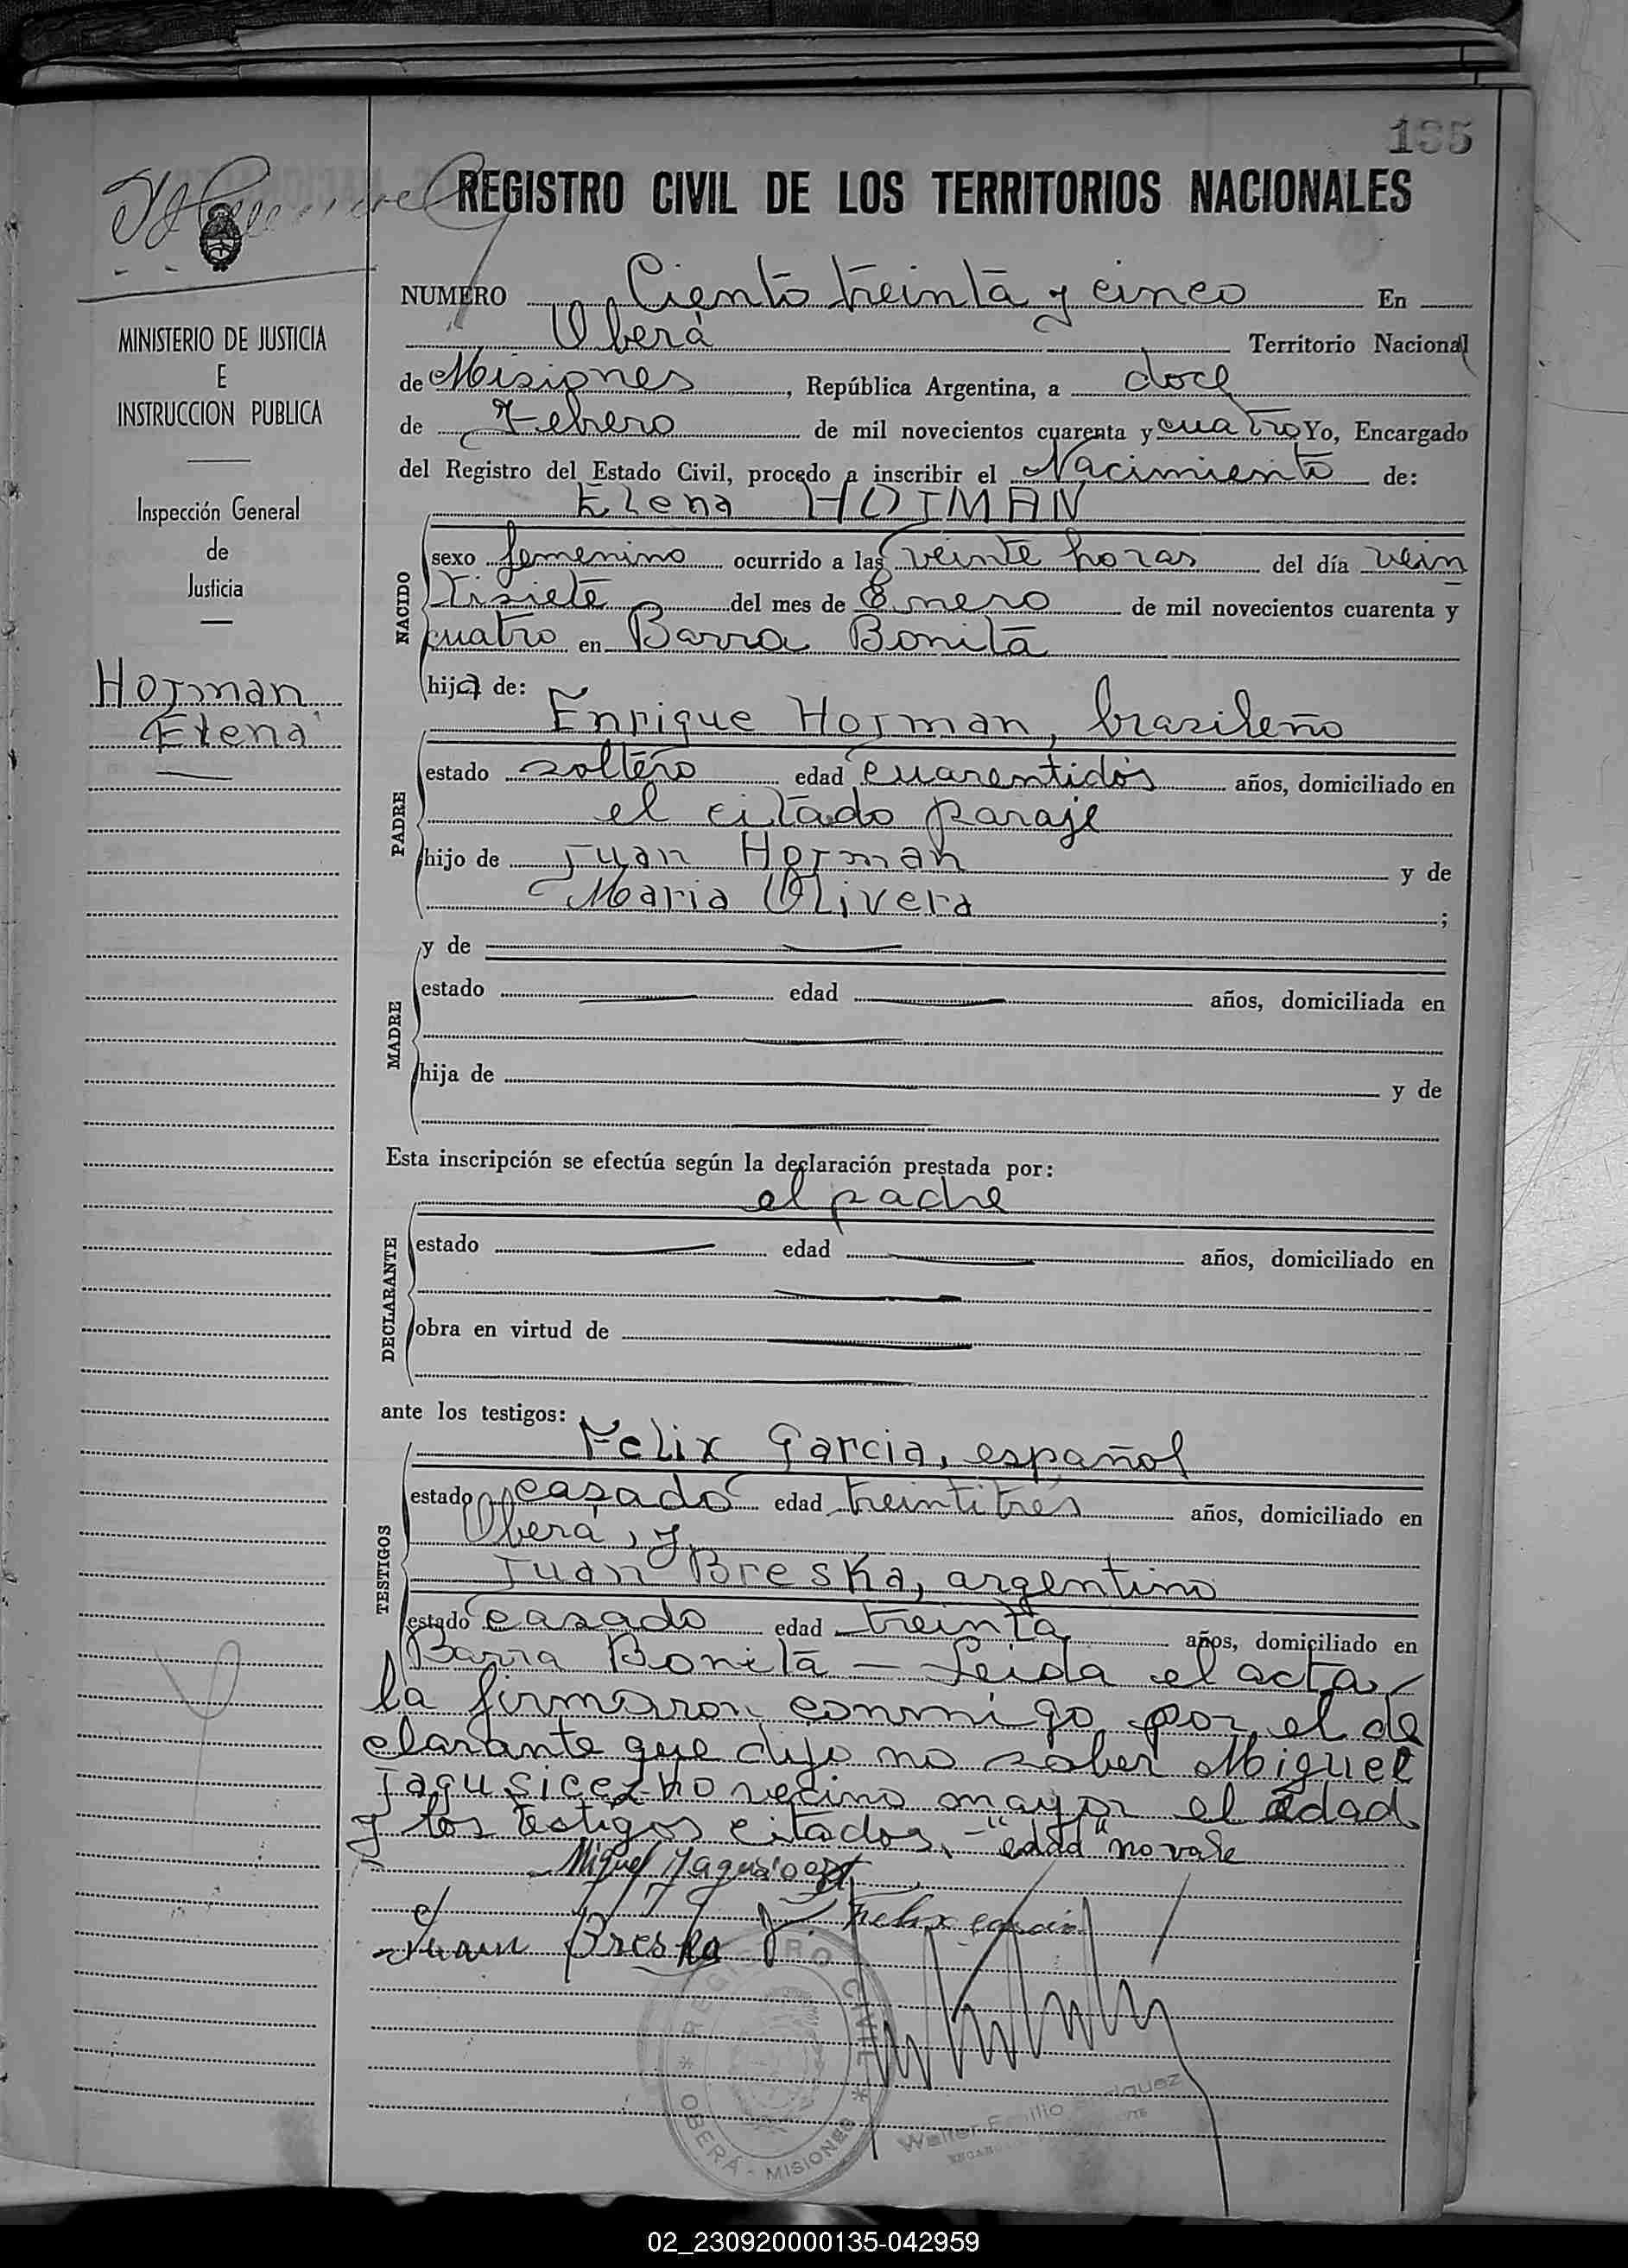 135
REGISTRO CIVIL DE LOS TERRITORIOS NACIONALES
NUMERO Ciento treinta y cinco En
Oberá Territorio Nacional
de Misiones, República Argentina, a doce
de Febrero de mil novecientos cuarenta y cuatro Yo, Encargado
del Registro del Estado Civil, procedo a inscribir el Nacimiento de:
Elena HOJMAN
NACIDO
sexo femenino ocurrido a las veinte horas del día vein
tisiete del mes de Enero de mil novecientos cuarenta y
cuatro en Barra Bonita
hija de:
Enrique Hojman, brasileño
PADRE
estado soltero edad cuarentidós años, domiciliado en
el citado paraje
hijo de Juan Hojman y de
Maria Olivera;
y de
MADRE
estado edad años, domiciliada en
hija de y de
Esta inscripción se efectúa según la declaración prestada por:
el padre
DECLARANTE
estado edad años, domiciliado en
obra en virtud de
ante los testigos:
Felix Garcia, español
TESTIGOS
estado casado edad treintitrés años, domiciliado en
Oberá, y
Juan Breska, argentino
estado casado edad treinta años, domiciliado en
Barra Bonita — Leida el acta
la firmaron conmigo por el de
clarante que dijo no saber Miguel
vecino mayor el edad
y los testigos citados. - "edad" no vale
Miguel
Felix Garcia
Juan Breska
REGISTRO CIVIL
OBERÁ - MISIONES
Walter Emilio
MINISTERIO DE JUSTICIA
E
INSTRUCCION PUBLICA
Inspección General
de
Justicia
Hojman
Elena
02_230920000135-042959